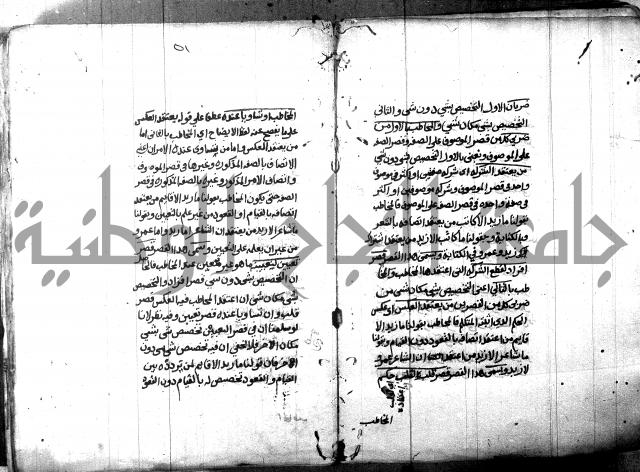 ضربان الاول التخصيص بشي دون شي والثاني
التخصيص بشي مكان شي والمخاطب بالاول من
ضربي كل من قصر الموصوف وقصر الصفة
على الموصوف ونعني بالاول التخصيص بشي دون شي
من يعتقد الشركة اي شركة صفتين او اكثر في موصوف
واحد في قصر الموصوف وشركة موصوفين او اكثر
في صفة واحدة في قصر الصفة على الموصوف فالمخاطب
بقولنا ما زيد الا كاتب من يعتقد اتصافه بالشعر
وبالكتابة وبقولنا ما كاتب الا زيد من يعتقد اشتراك
زيد وعمرو في الكتابة ويسمى هذا القصر قصر
افراد لقطع الشركة التي اعتقدها المخاطب والمخا
طب بالثاني اعني التخصيص بشي مكان شي من
ضربي كل من القصرين من يعتقد العكس اي عكس
الحكم الذي اثبته المتكلم فالمخاطب بقولنا ما زيد الا
قائم من اعتقد اتصافه بالقعود دون القيام وبقولنا
ما شاعر الا زيد من اعتقد ان الشاعر عمرو
لا زيد ويسمى هذا القصر قصر قلب لقلب حكم
المخاطب
٥١
المخاطب او تساويا عنده عطف على قوله يعتقد العكس
على ما يفصح عنه لفظ الايضاح اي المخاطب بالثاني اما
من يعتقد العكس واما من تساوى عنده الامران اعني
الاتصاف بالصفة المذكورة وغيرها في قصر الموصوف
واتصاف الامر المذكور وغيره بالصفة المذكورة في قصر
الصفة حتى يكون المخاطب بقولنا ما زيد الا قائم من يعتقد
اتصافه بالقيام او القعود من غير علم بالتعيين وبقولنا
ما شاعر الا زيد من يعتقد ان الشاعر زيد او عمرو
من غير ان يعلمه على التعيين ويسمى هذا القصر قصر
تعيين لتعيينه ما هو غير معين عند المخاطب فالحا
ان التخصيص بشي دون شي قصر افراد والتخصيص
بشي مكان شي ان اعتقد المخاطب فيه العكس قصر
قلب وان تساويا عنده قصر تعيين وفيه نظر لانا
لو سلمنا ان في قصر التعيين تخصيص شي بشي
مكان الاخر فلا يخفى ان فيه تخصيص شي بشي دون
الاخر فان قولنا ما زيد الا قائم لمن تردده بين
القيام والقعود تخصيص له بالقيام دون القعود
جامعة الملك الوطنية